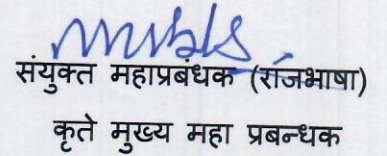 संयुक्त महाप्रबंधक (राजभाषा)
कृते मुख्य महा प्रबन्धक